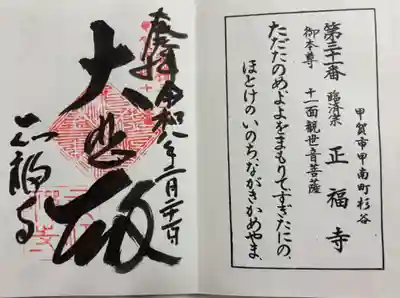 甲賀市甲南町杉谷
第三十一番 臨済宗 正福寺
御本尊 十一面観世音菩薩
ただたのめ、よよをまもりて、すぎたにの、
ほとけの いのち、ながきかめやま、
奉拝 令和八年二月二十一日
大悲殿
正福寺